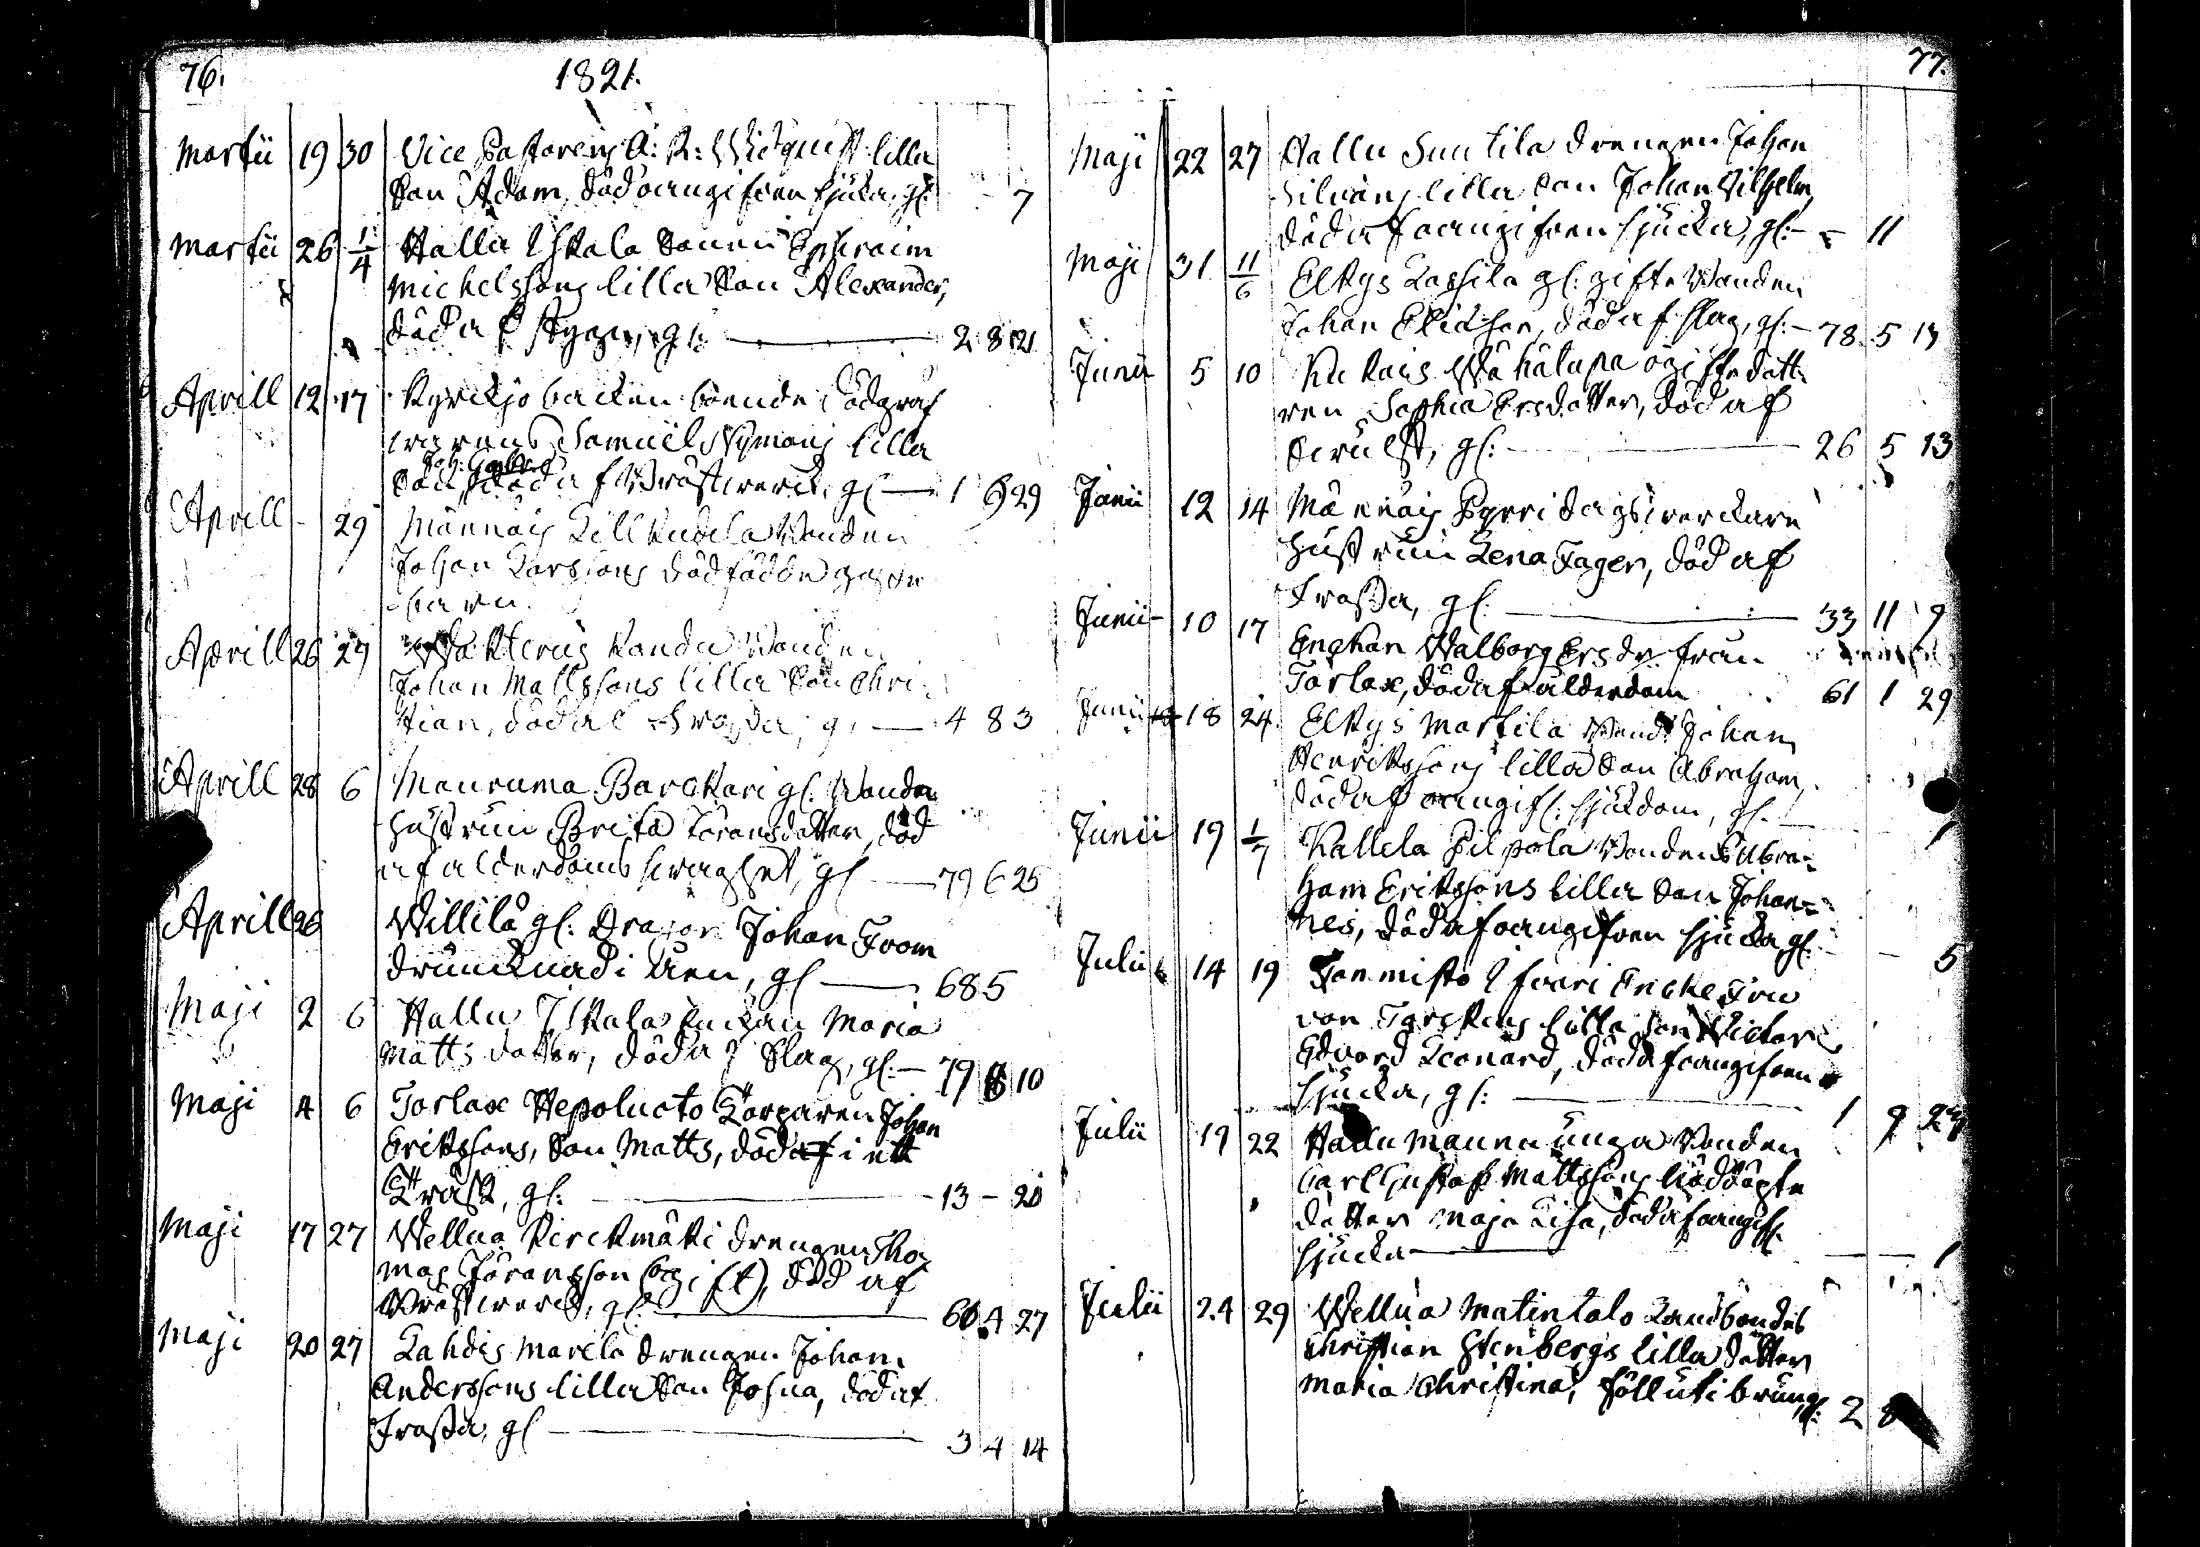 76.
1821.
Martii 19 30 Vice Pastorens A: R: Widquist lilla
Son Adam, död oangifven sjuka, gl: - 7
Martii 26 1/4 Halla Iskala Sonen Ephraim
Michelssons lilla Son Alexander,
död af Styng, gl: — 2 8 21
Aprill 12 17 Kyrkjobacken boende Dödgraf
warens Samuel Nymans lilla
Son, död af Bröstwerck, gl — 1 9 29
Aprill - 29 Männäis Kill Bonden
Johan Larssons dödfödde gosse
barn.
Aprill 26 29 Bonden
Johan Mattssons lilla Son Chri-
stian, död af Frossa, gl — 4 8 3
Aprill 28 6 Mauruma Barckari gl: Bonden
hustrun Brita Göransdotter, död
af ålderdoms swaghet, gl — 79 6 25
Aprill 26 Willilä gl: Dragon Johan From
drunknad i åen, gl — 68 5
Maji 2 6 Hallu Iskala Enckan Maria
Matts dotter, död af Slag, gl: — 79 8 10
Maji 4 6 Torlax Hepoluoto Torparen Johan
Erikssons, Son Matts, död i ett
Träsk, gl: — 13 - 20
Maji 17 27 Wellua Kirckmäki drengen Tho-
mas Göransson (ogift), död af
Bröstwerck, gl: — 60 4 27
Maji 20 27 Lahdis Marcla drengen Johan
Anderssons lilla Son Josua, död af
Frossa, gl — 3 4 14
77.
Maji 22 27 Hallu Suutila drengen Johan
Silvens lilla Son Johan Wilhelm,
död af oangifven sjucka, gl: - - 11
Maji 31 11/6 Elkys Lassila gl: gifte Bonden
Johan Ericsson, död af slag, gl: - 78 5 13
Junii 5 10 Kukois Wähätupa ogifte dott-
ren Sophia Ersdotter, död af
Swulst, gl: — 26 5 13
Junii 12 14 Männäis Pyrri dagswerckare
hustrun Lena Fager, död af
Frossa, gl: — 33 11 9
Junii - 10 17 Enckan Walborg Ersdr från
Torlax, död af ålderdom 61 1 29
Junii 18 24. Elkys Martila Bond: Johan
Henrikssons lilla Son Abraham,
död af oangif: sjukdom, gl. — 1
Junii 19 1/7 Kallela Pilpola Bondens Abra-
ham Erikssons lilla Son Johan-
nes, död af oangifven sjucka, gl: — 5
Julii 14 19 Tommisto Ifvari Encke Fru
von Torckens lilla son Victor
Edvard Leonard, död af oangifven
sjucka, gl: — 1 9 29
Julii 19 22 Hallu Maunu unga Bonden
Carl Gustaf Mattssons nöddöpte
dotter Maja Lisa, död af oangif:
sjucka — — — 1
Julii 24 29 Wellua Matintalo Landbondes
Christian Stenbergs lilla dotter
Maria Christina, föll uti brunn, gl: 2 8